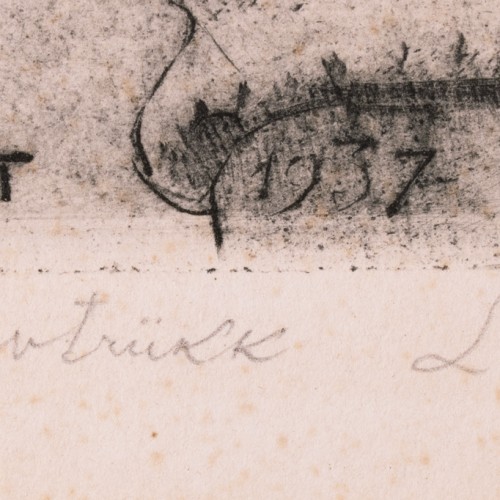 T 1937
vtrükk L